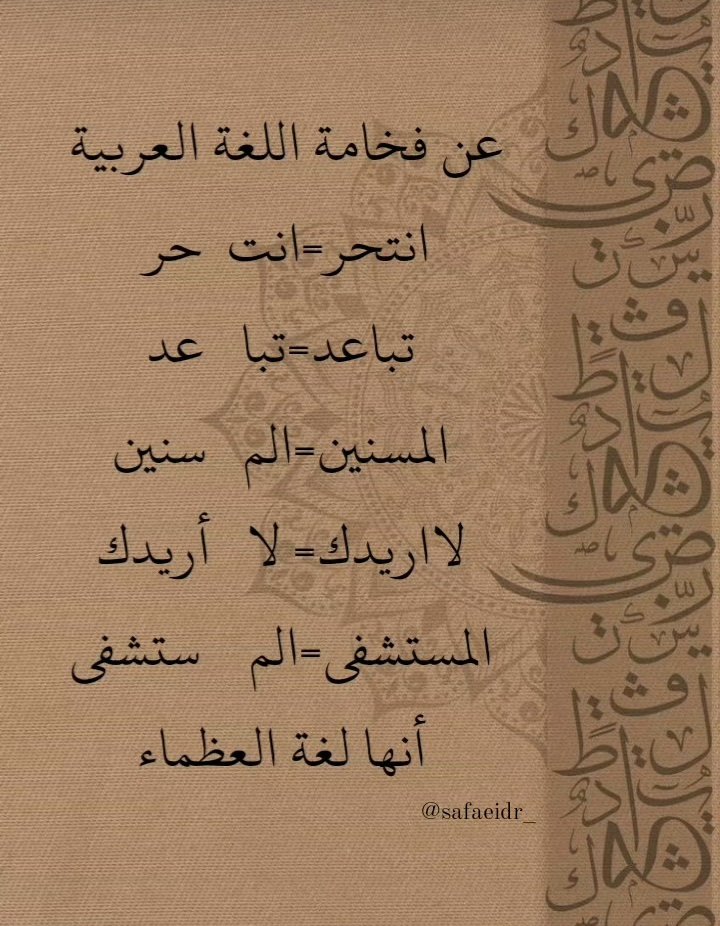 عن فخامة اللغة العربية
انتحر=انت حر
تباعد=تبا عد
المسنين=الم سنين
لااريدك= لا أريدك
المستشفى=الم ستشفى
أنها لغة العظماء
@safaeidr_